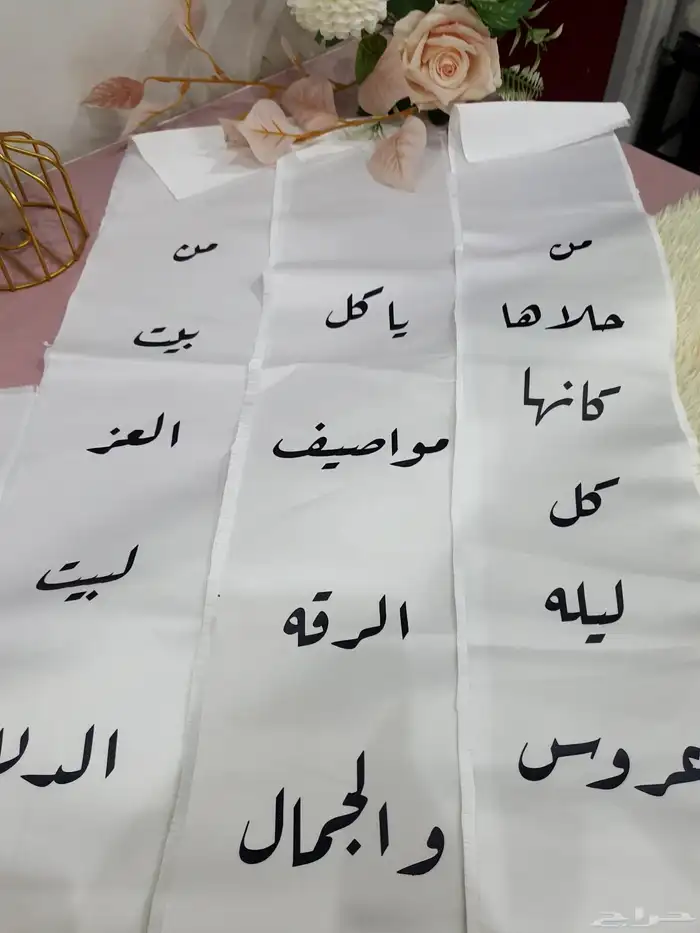 من
حلاها
كانها
كل
ليله
عروس
ياكل
مواصيف
الرقه
والجمال
من
بيت
العز
لبيت
حراج